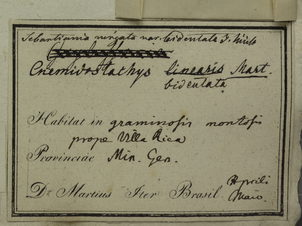 Sebastiania virgata var. bidentata J. Müll.
Cnemidostachys linearis Mart.
bidentata
Habitat in graminosis montosis
prope Villa Rica
Provinciae Min. Gen.
Dr. Martius Iter Brasil.
Aprili
Maio.